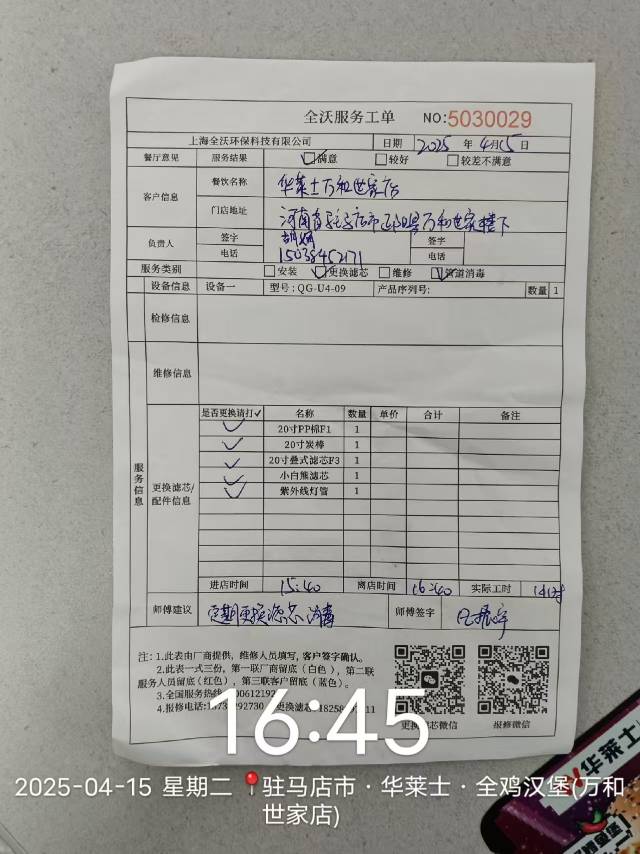 全沃服务工单 NO:5030029
上海全沃环保科技有限公司 日期 2025 年 4月15日
餐厅意见 服务结果 满意 较好 较差不满意
客户信息 餐饮名称 华莱士万和世家店
门店地址 河南省驻马店市 万和世家楼下
负责人 签字 签字
电话 电话
服务类别 安装 更换滤芯 维修 管道消毒
设备信息 设备一 型号:QG-U4-09 产品序列号: 数量 1
检修信息
维修信息
服务信息
更换滤芯/配件信息
是否更换请打✓ 名称 数量 单价 合计 备注
✓ 20寸PP棉F1 1
✓ 20寸炭棒 1
✓ 20寸叠式滤芯F3 1
✓ 小白熊滤芯 1
✓ 紫外线灯管 1
进店时间 15:40 离店时间 16:40 实际工时 1小时
师傅建议 定期更换滤芯 消毒 师傅签字
注: 1.此表由厂商提供, 维修人员填写, 客户签字确认。
2.此表一式三份, 第一联厂商留底(白色), 第二联
服务人员留底(红色), 第三联客户留底(蓝色)。
3.全国服务热线
4.报修电话: 更换滤芯
更换滤芯微信 报修微信
16:45
2025-04-15 星期二 驻马店市·华莱士·全鸡汉堡(万和
世家店)
华莱士